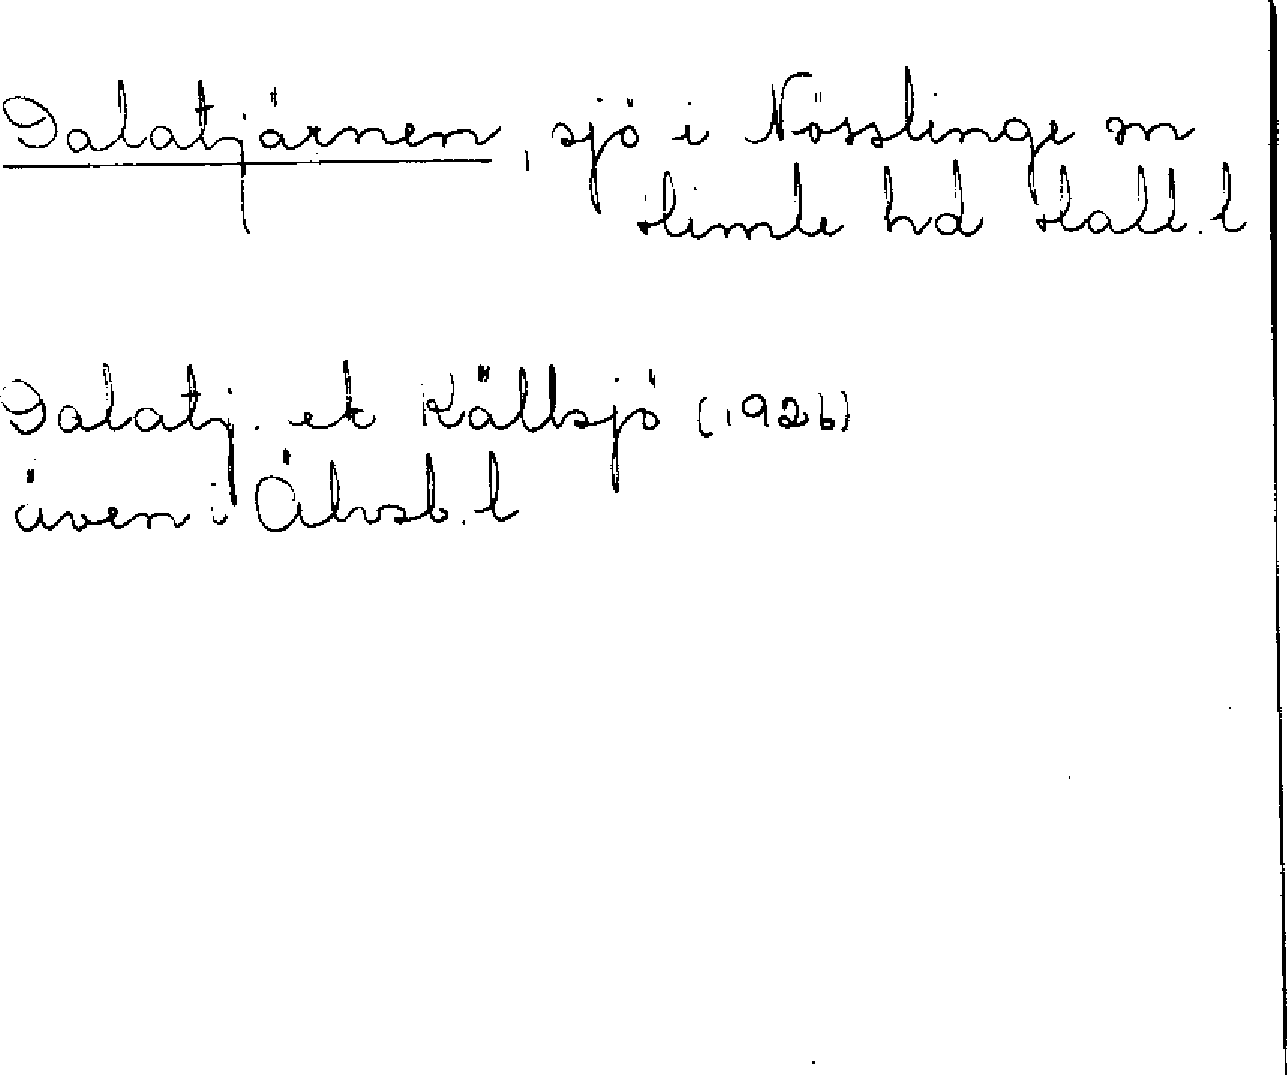 Dalatjärnen, sjö i Nösslinge sn
Himle hd Hall. l
Dalatj. ek Källsjö (1926)
även i Älvsb. l